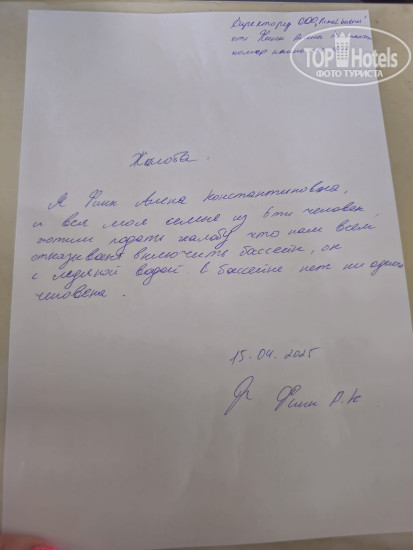 Директору ООО,
от Финк Алена
номер
TOP Hotels
ФОТО ТУРИСТА
Жалоба.
Я Финк Алена Константиновна,
и вся моя семья из 6ти человек
хотим подать жалобу что нам всем
отказывают включить бассейн, он
с ледяной водой в бассейне нет ни одного
человека.
15.04.2025
Финк